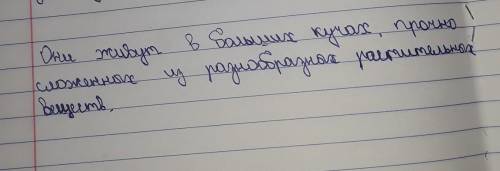 Они живут в больших кучах, прочно
сложенных из разнообразных растительных
веществ.